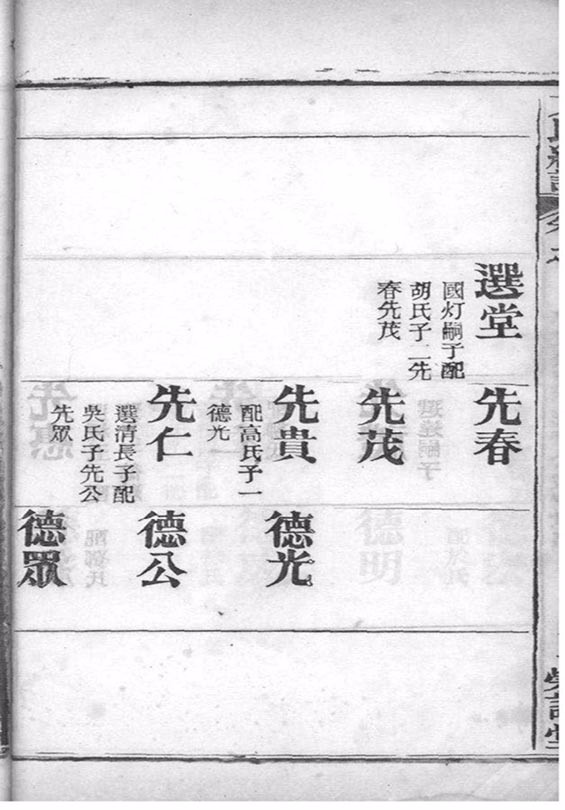 選堂
國灯嗣子配
胡氏子二先
春先茂
先春
先茂
先貴
配高氏子一
德光
先仁
選清長子配
吳氏子先公
先眾
德光
德公
德眾